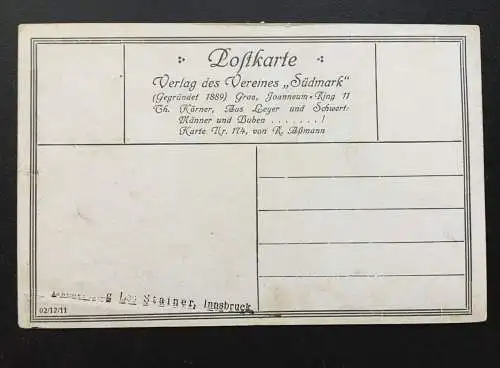 Postkarte
Verlag des Vereines „Südmark"
(Gegründet 1889) Graz, Joanneum-Ring 11
Th. Körner, Aus Leyer und Schwert:
Männer und Buben . . . . . . . !
Karte Nr. 174, von R. Aßmann
g Leo Stainer, Innsbruck
02/12/11